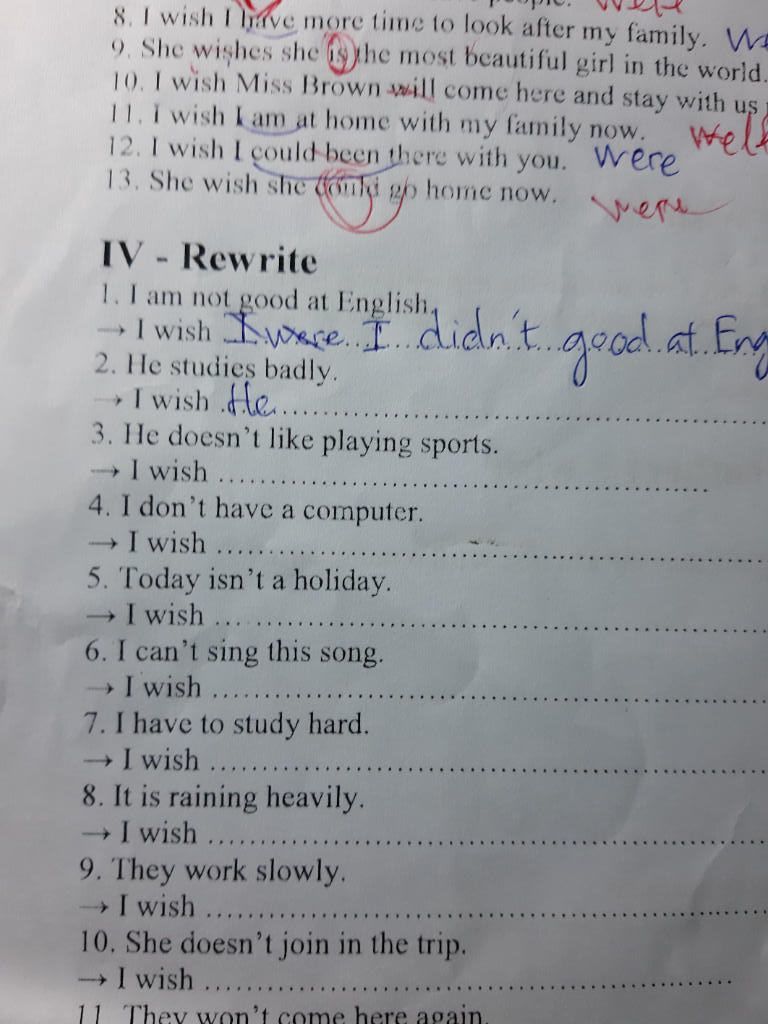 8. I wish I have more time to look after my family.
9. She wishes she is the most beautiful girl in the world.
10. I wish Miss Brown will come here and stay with us
11. I wish I am at home with my family now.
12. I wish I could been there with you. were
13. She wish she could go home now. were
IV - Rewrite
1. I am not good at English.
→ I wish I were I didn't good at Eng
2. He studies badly.
→ I wish He
3. He doesn't like playing sports.
→ I wish
4. I don't have a computer.
→ I wish
5. Today isn't a holiday.
→ I wish
6. I can't sing this song.
→ I wish
7. I have to study hard.
→ I wish
8. It is raining heavily.
→ I wish
9. They work slowly.
→ I wish
10. She doesn't join in the trip.
→ I wish
11. They won't come here again.